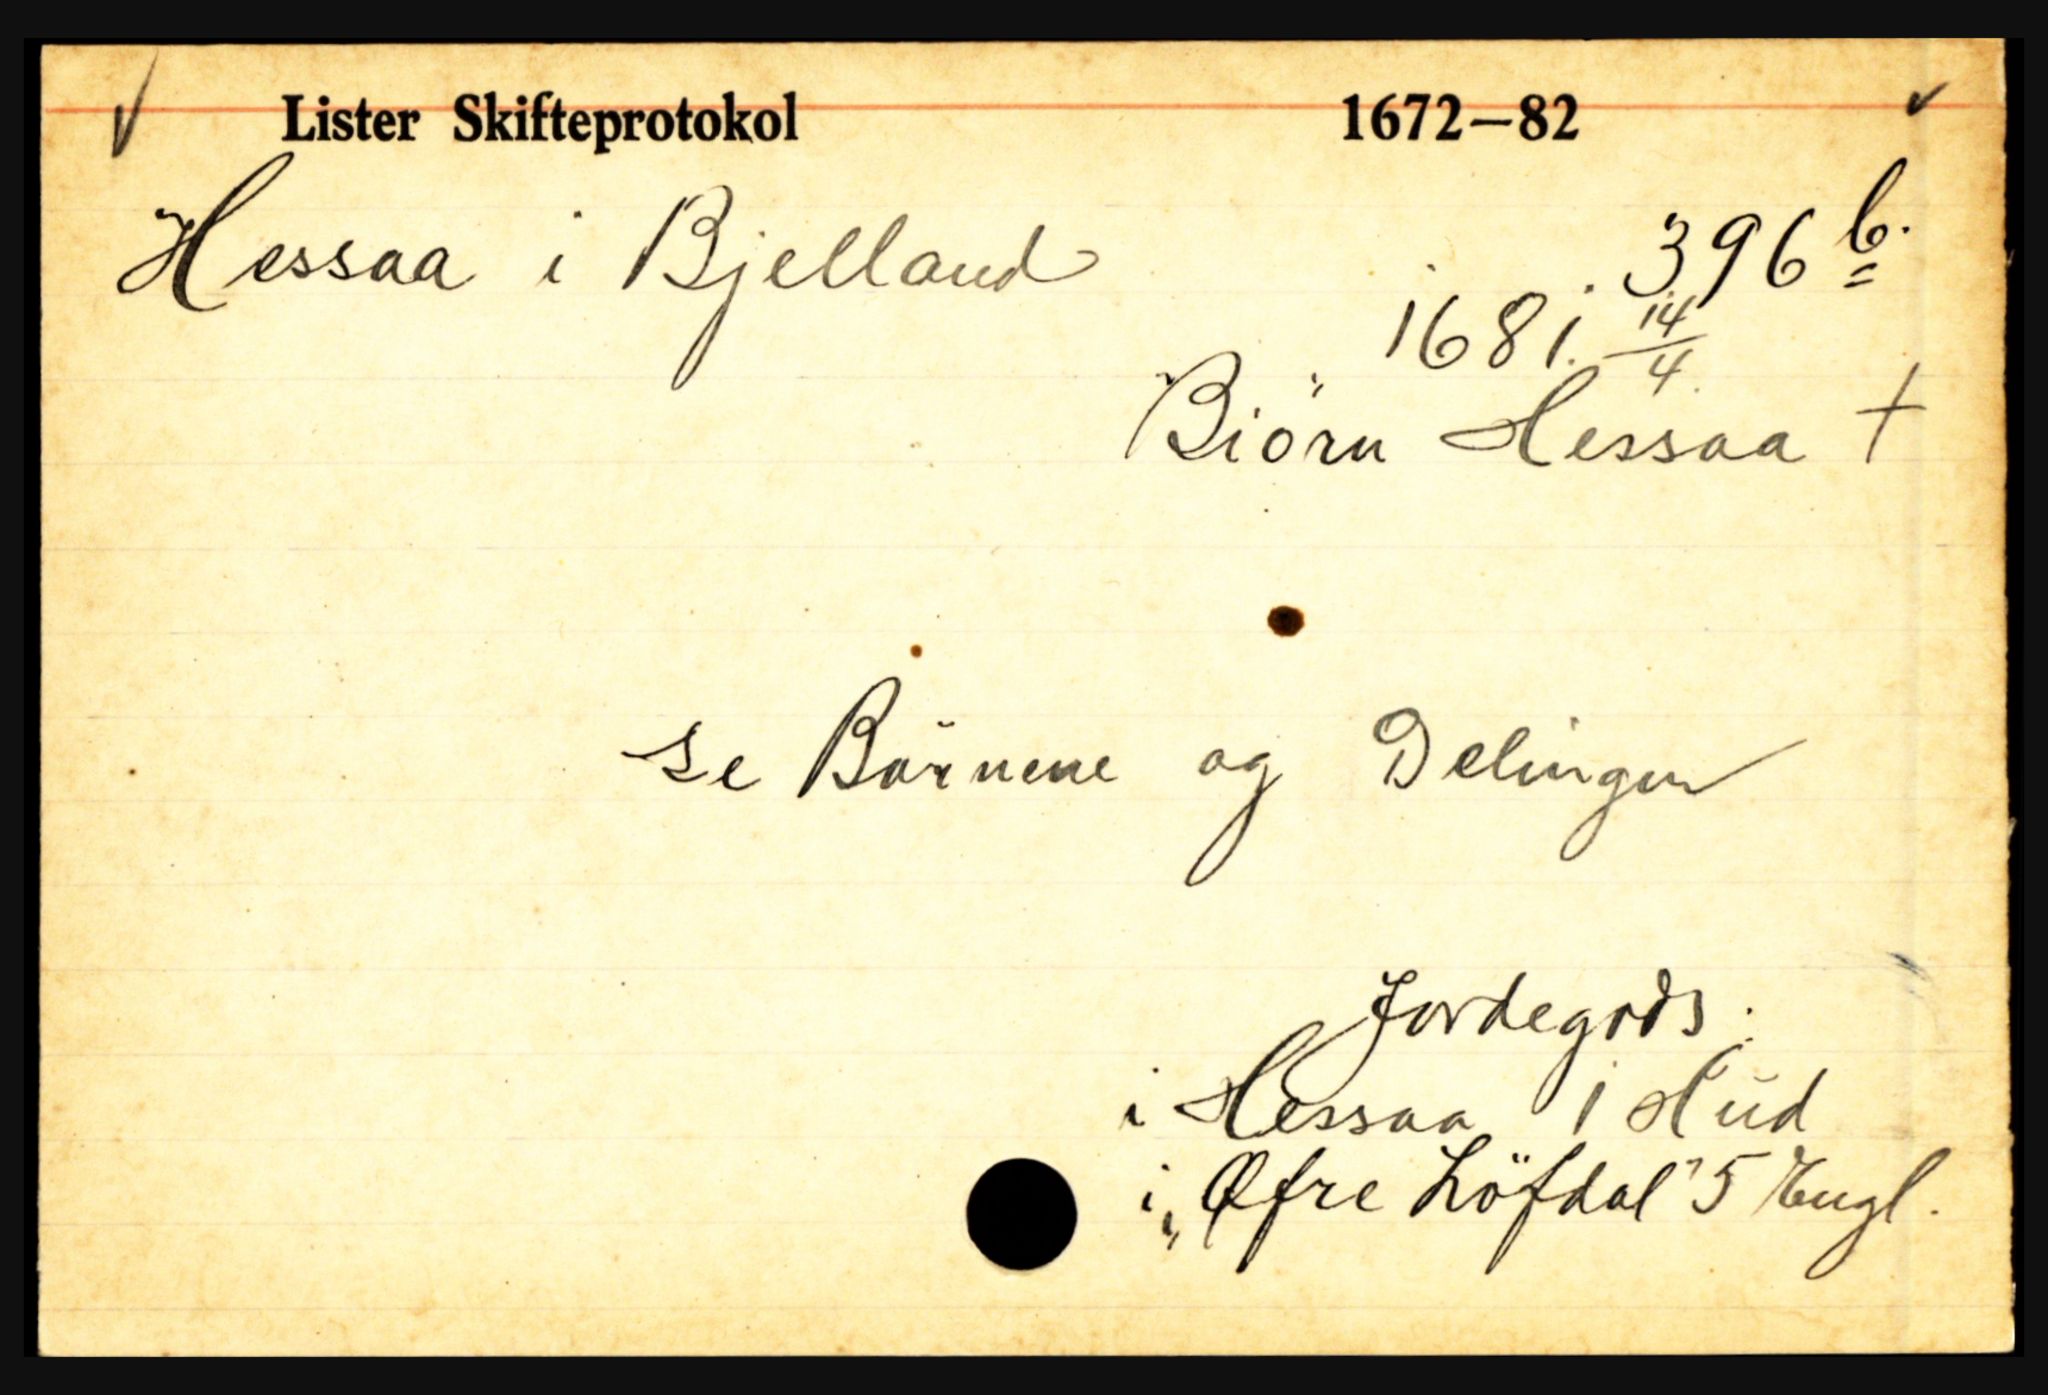 Lister Skifteprotokol 1672—82
Hessaa i Bjelland 396 b.
1681. 14/4.
Biörn Hessaa †
se Börnene og Delingen
Jordegods:
i Hessaa 1 Hud
i „Øfre Löfdal" 5 Engl.